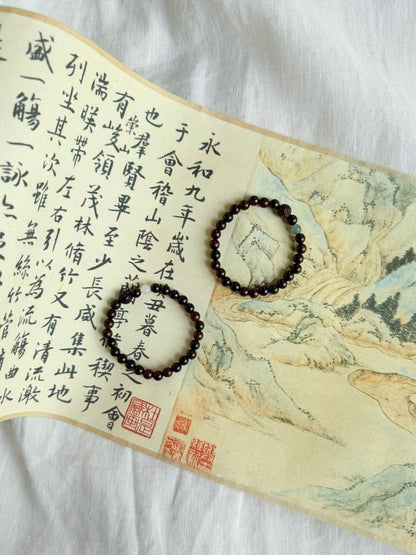 永和九年歲在丑暮春之初會
于會稽山陰之蘭亭脩禊事
也群賢畢至少長咸集此地
有崇山峻領茂林脩竹又有清流激
湍暎帶左右引以為流觴曲水
列坐其次雖無絲竹管
盛一觴一詠亦